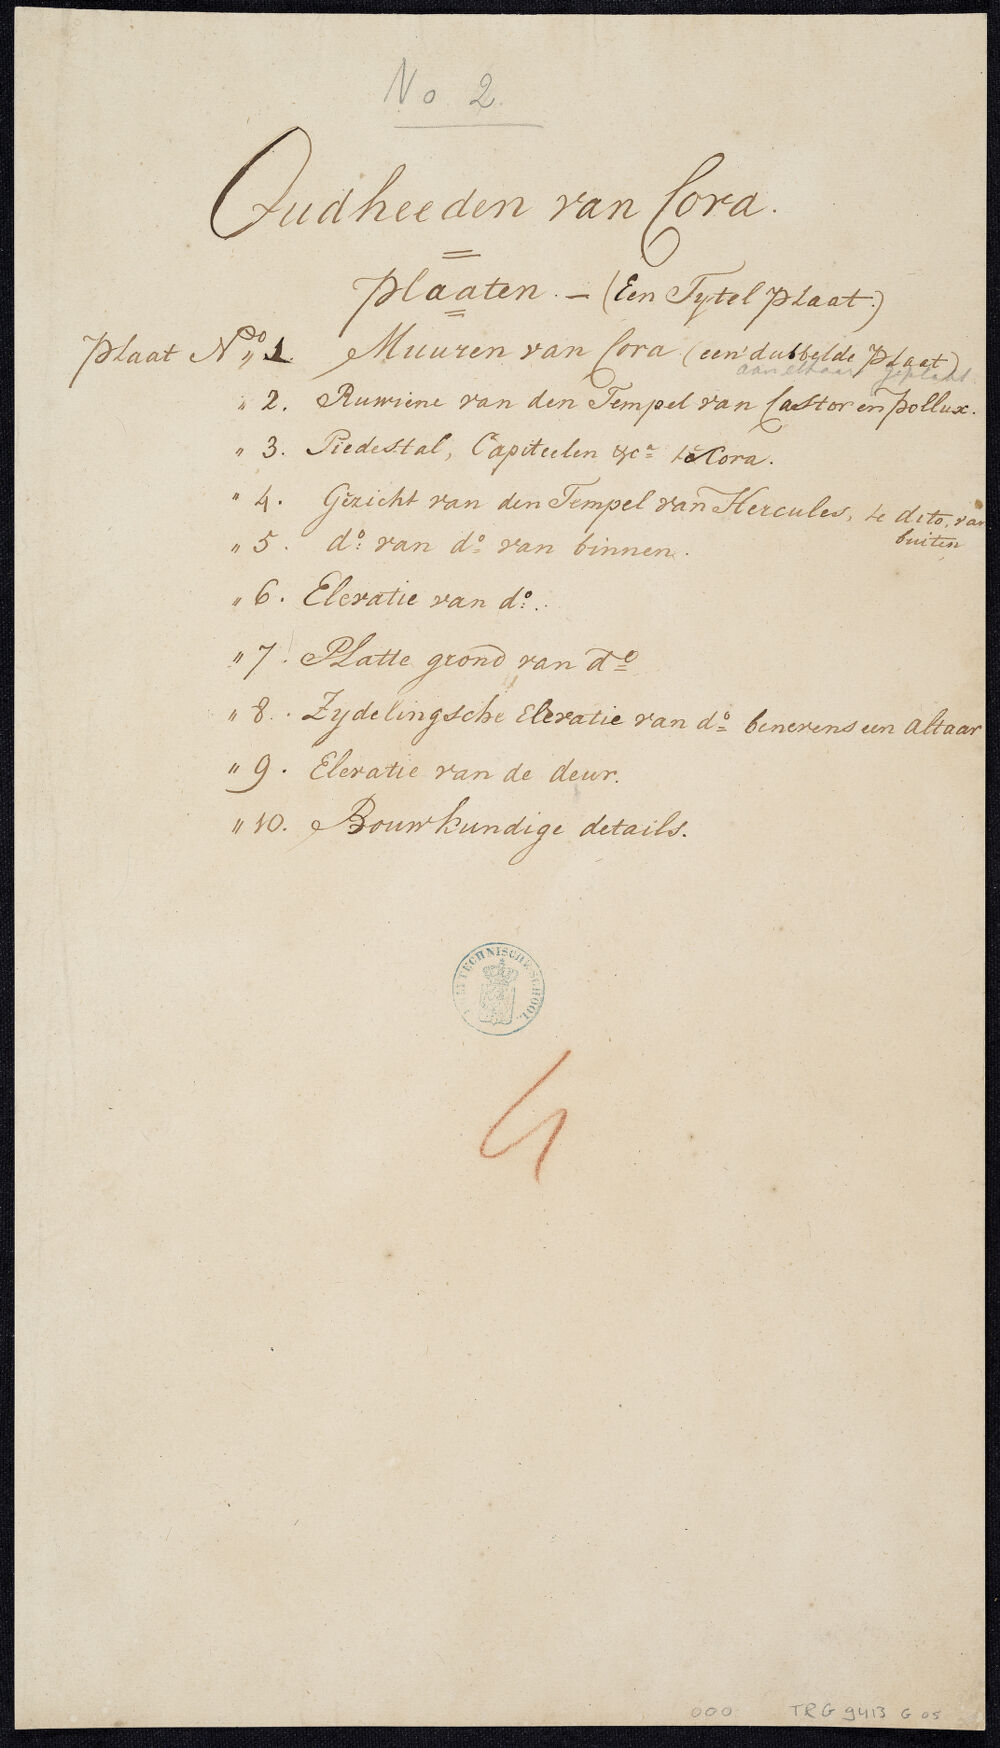 No 2.
Oudheeden van Cora.
Plaaten. — (Een Tytel plaat.)
Plaat No „ 1. Muuren van Cora (een dubbelde plaat)
aan elkaar geplakt
„ 2. Ruwiene van den Tempel van Castor en Pollux.
„ 3. Piedestal, Capiteelen &ca te Cora.
„ 4. Gezicht van den Tempel van Hercules, te dito, van
buiten
„ 5. do: van do: van binnen.
„ 6. Elevatie van do:.
„ 7. Platte grond van do
„ 8. Zydelingsche Elevatie van do benevens een altaar
„ 9. Elevatie van de deur.
„ 10. Bouwkundige details.
POLYTECHNISCHE SCHOOL
000 TRG 9413 G 05